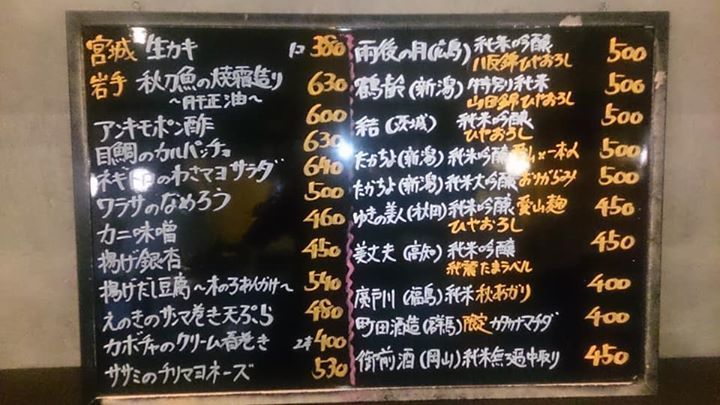 宮城 生カキ 1コ 380
岩手 秋刀魚の焼霜造り 630
~肝正油~
アンキモポン酢 600
目鯛のカルパッチョ 630
ネギ のわさマヨサラダ 640
ワラサのなめろう 500
カニ味噌 460
揚げ銀杏 450
揚げだし豆腐~木の子あんかけ~ 540
えのきのサンマ巻き天ぷら 480
カボチャのクリーム春巻き 2本 400
ササミのチリマヨネーズ 530
雨後の月(広島) 純米吟醸 500
八反錦ひやおろし
鶴齢(新潟) 特別純米 500
山田錦ひやおろし
結(茨城) 純米吟醸 500
ひやおろし
たかちよ(新潟) 純米吟醸 愛山×一本〆 500
たかちよ(新潟) 純米大吟醸 おりがらみ 500
ゆきの美人(秋田) 純米吟醸 愛山麹 450
ひやおろし
美丈夫(高知) 純米吟醸 450
純麗たまラベル
廣戸川(福島) 純米 秋あがり 400
町田酒造(群馬) 限定 カタカナマチダ 400
御前酒(岡山) 純米無ろ過中取り 450